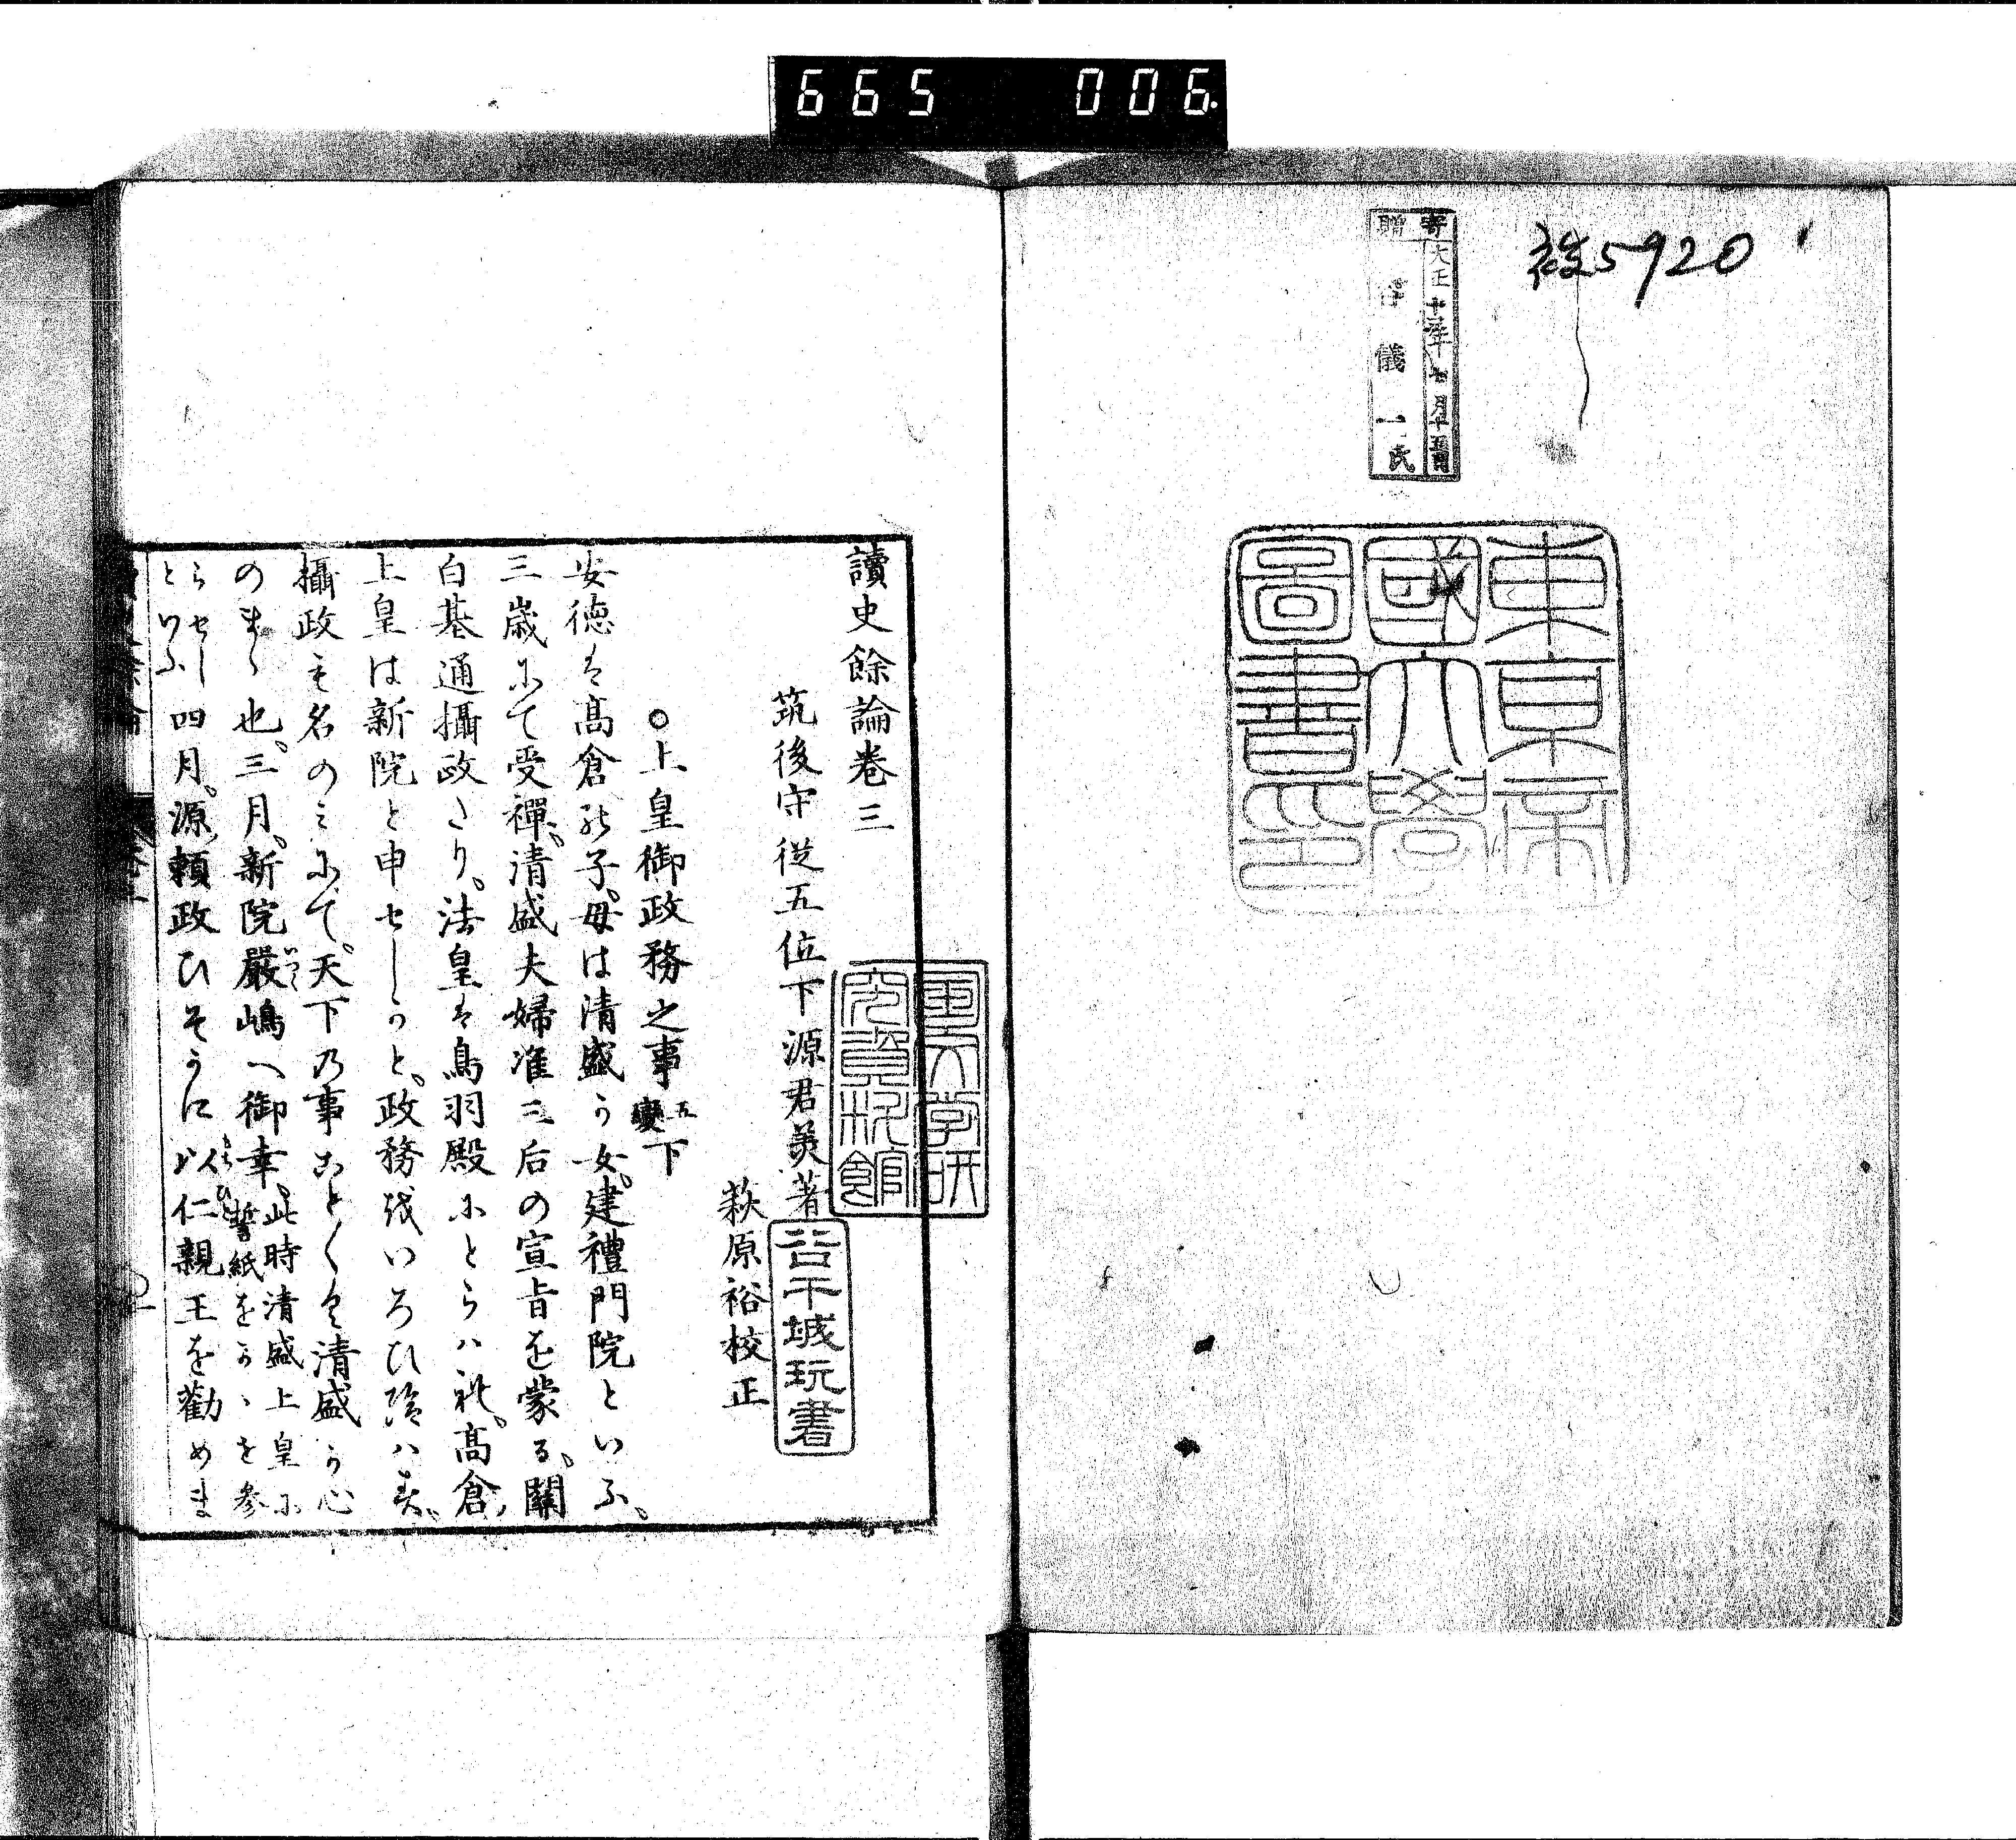 665 006.
5920
寄贈
大正十年七月十五日
儀一氏
東京帝
國大學
圖書印
讀史餘論卷三
筑後守從五位下源君美著
萩原裕校正
國文学研
究資料館
谷干城玩書
○上皇御政務之事五變下
安徳は高倉の子。母は清盛か女。建禮門院といふ。
三歳にて受禪。清盛夫婦准三后の宣旨を蒙る。關
白基通攝政たり。法皇は鳥羽殿にとらハれ。高倉
上皇は新院と申せしかと。政務をいろひ給ハす。
攝政も名のミにて。天下乃事ことことく清盛か心
のまゝ也。三月。新院嚴嶋へ御幸。此時清盛上皇に誓紙をかゝを参
らせしといふ四月。源頼政ひそかに以仁親王を勸めま